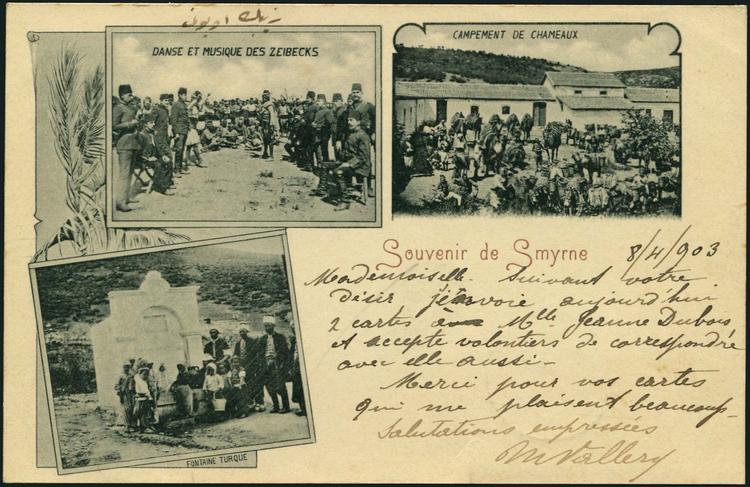 DANSE ET MUSIQUE DES ZEIBECKS
CAMPEMENT DE CHAMEAUX
Souvenir de Smyrne
8/4/903
Mademoiselle. Suivant votre
désir aujourd'hui
2 cartes Mlle Jeanne Dubois
et accepte volontiers de correspondre
avec elle aussi-
Merci pour vos cartes
qui me plaisent beaucoup-
Salutations empressées
MVallery
FONTAINE TURQUE